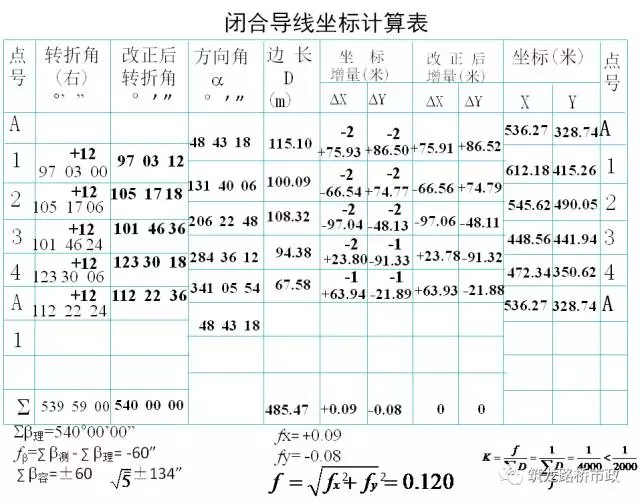 闭合导线坐标计算表
点号 转折角(右) ° ′ ″ 改正后转折角 ° ′ ″ 方向角 α ° ′ ″ 边 长 D (m) 坐 标 增量(米) ΔX ΔY 改 正 后 增量(米) ΔX ΔY 坐标(米) X Y 点号
A 536.27 328.74 A
48 43 18 115.10 -2 +75.93 -2 +86.50 +75.91 +86.52
1 +12 97 03 00 97 03 12 612.18 415.26 1
131 40 06 100.09 -2 -66.54 -2 +74.77 -66.56 +74.79
2 +12 105 17 06 105 17 18 545.62 490.05 2
206 22 48 108.32 -2 -97.04 -2 -48.13 -97.06 -48.11
3 +12 101 46 24 101 46 36 448.56 441.94 3
284 36 12 94.38 -2 +23.80 -1 -91.33 +23.78 -91.32
4 +12 123 30 06 123 30 18 472.34 350.62 4
341 05 54 67.58 -1 +63.94 -1 -21.89 +63.93 -21.88
A +12 112 22 24 112 22 36 536.27 328.74 A
48 43 18
1
Σ 539 59 00 540 00 00 485.47 +0.09 -0.08 0 0
Σβ理=540°00'00"
fβ=Σβ测-Σβ理= -60"
Σβ容=±60 √5 ±134"
fx= +0.09
fy= -0.08
f=√fx²+fy²=0.120
K = f/ΣD = 1/(ΣD/f) = 1/4000 < 1/2000
筑龙路桥市政